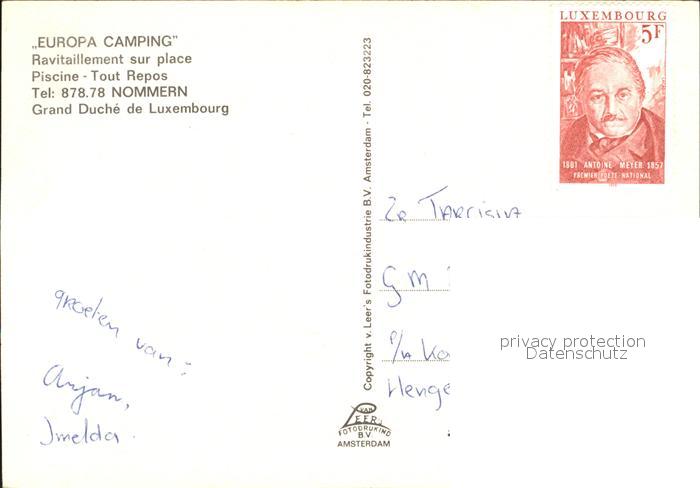 „EUROPA CAMPING"
Ravitaillement sur place
Piscine - Tout Repos
Tel: 878.78 NOMMERN
Grand Duché de Luxembourg
groeten van:
Arjan,
Imelda.
Copyright v. Leer's Fotodrukindustrie B.V. Amsterdam - Tel. 020-823223
VAN
LEER's
FOTODRUKIND
B.V.
AMSTERDAM
LUXEMBOURG
5F
1801 ANTOINE MEYER 1857
PREMIER POÈTE NATIONAL
Zr Tharcisia
G M
P/A Ko
Henge
privacy protection
Datenschutz